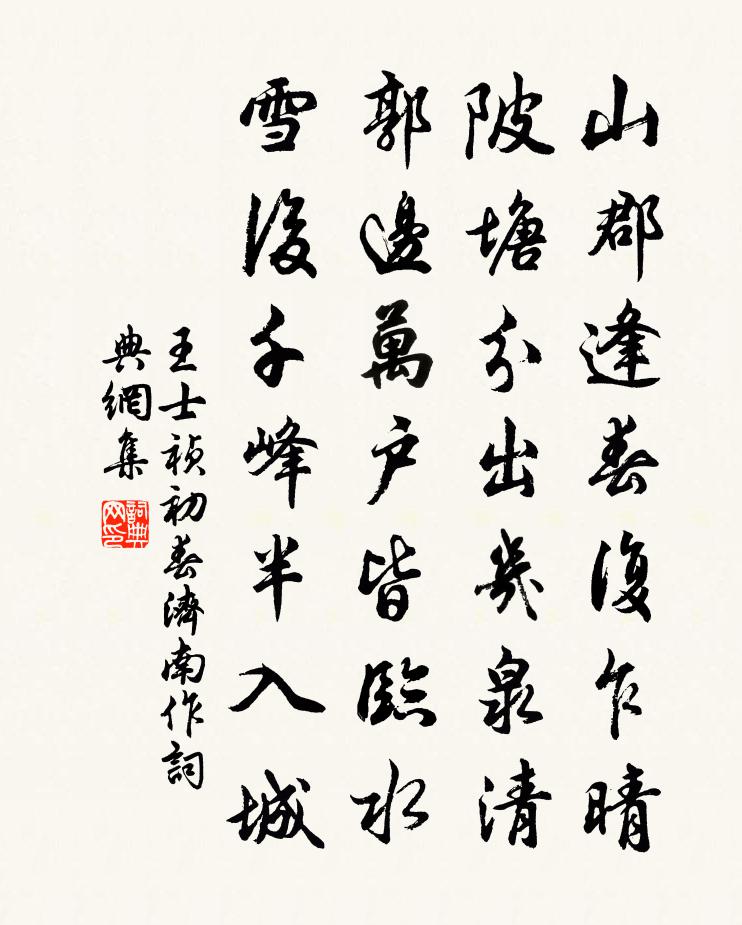 山郡逢春復乍晴
陂塘分出幾泉清
郭邊萬戶皆臨水
雪後千峰半入城
王士禎初春濟南作詞
典網集
詞典
网印